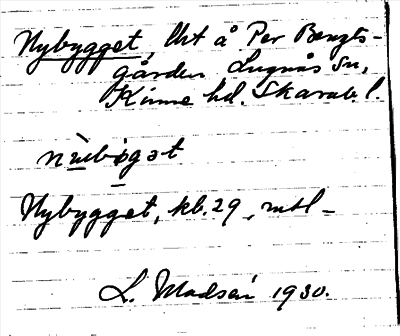 Nybygget, lht å Per Bengts-
gården Lugnås sn,
Kinne hd. Skarab. l.
Nybygget, kb. 29, mtl –
L. Madsén 1930.